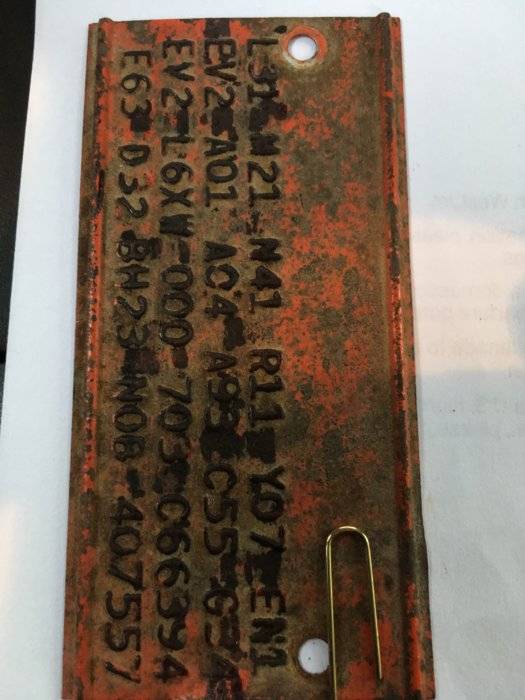 L31 M21 N41 R11 Y07 EN1
EV2 A01 AC4 A93 C55 G34
EV2 L6XW 000 703 C66394
E63 D32 BH23 N0B 407557